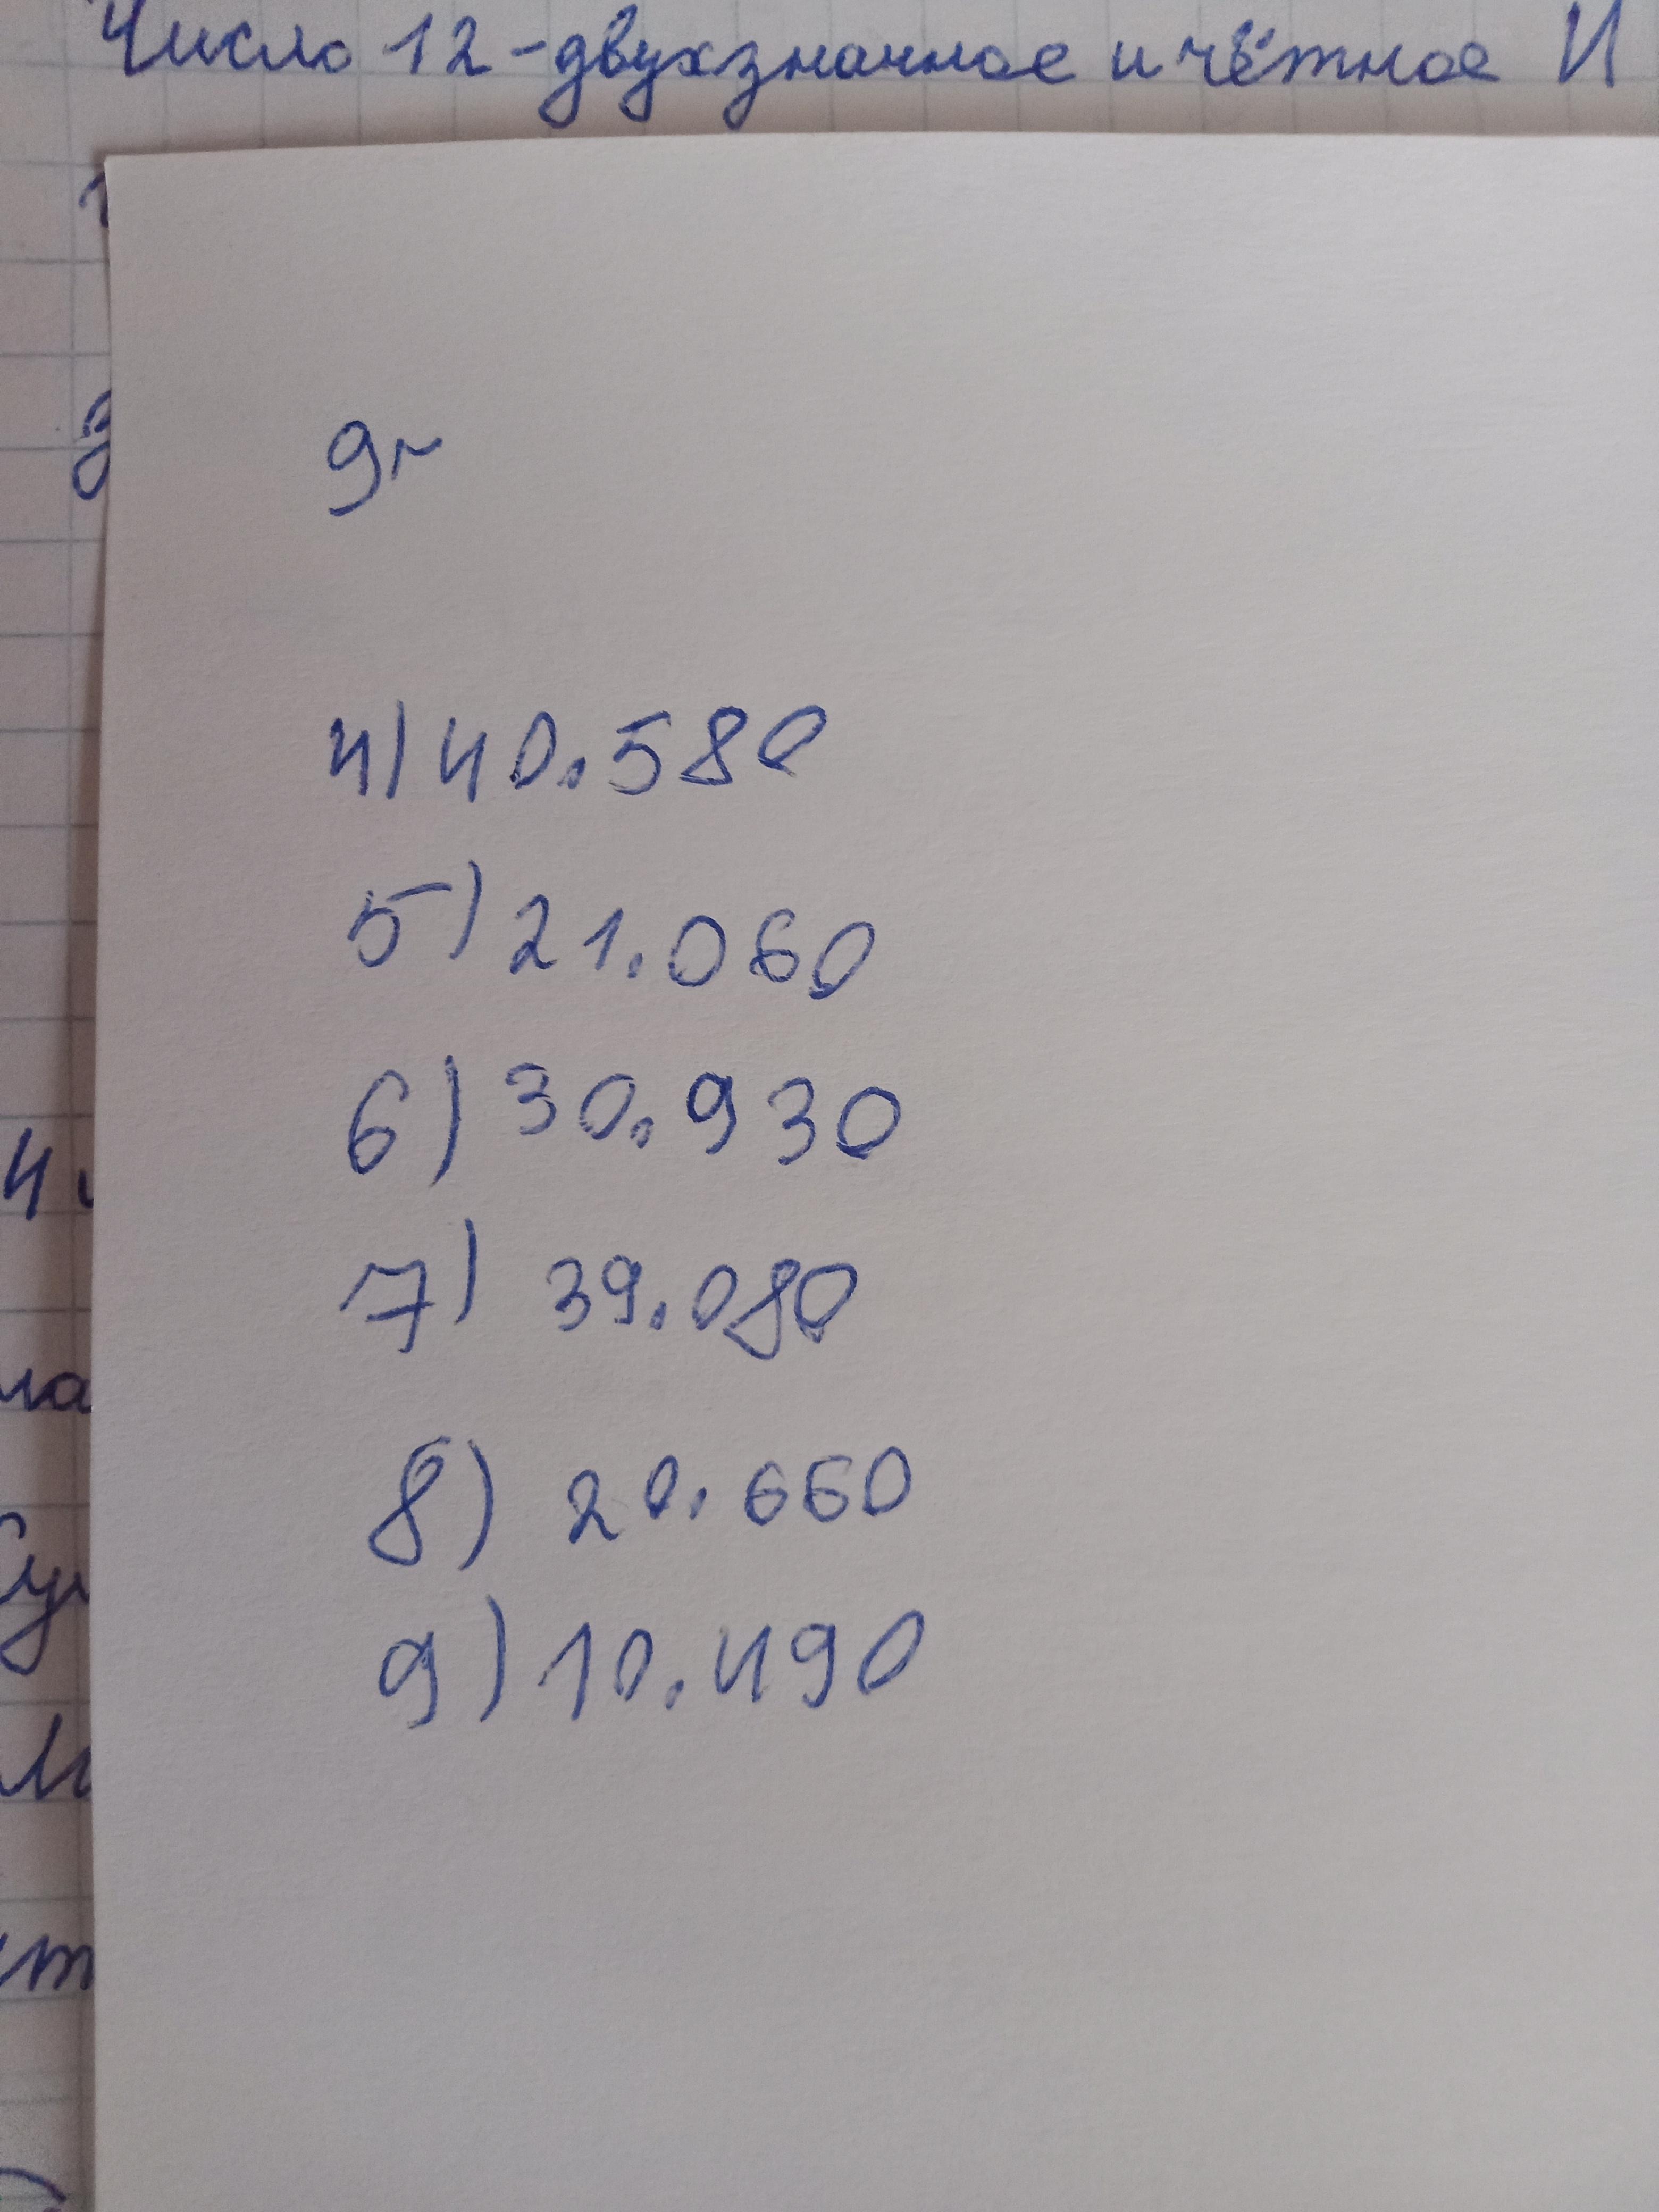 Число 12 - двухзначное и чётное И
9г
4) 40.580
5) 21.060
6) 30.930
7) 39.080
8) 20.660
9) 10.490